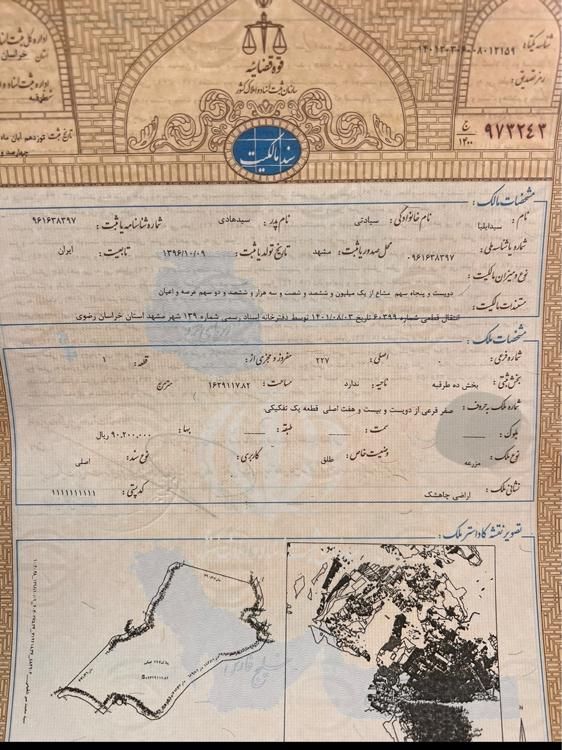 قوه قضائیه
سازمان ثبت اسناد و املاک کشور
اداره کل ثبت اسناد
استان خراسان
شناسه یکتا:
رمز تصدیق:
سند مالکیت
ج ۱۴۰۰ ۹۷۳۲۴۳
تاریخ ثبت نوزدهم آبان ماه
مشخصات مالک:
نام: سیدایلیا نام خانوادگی: سیادتی نام پدر: سیدهادی شماره شناسنامه یا ثبت: ۹۶۱۶۳۸۳۹۷
شماره یا شناسه ملی: ۰۹۶۱۶۳۸۳۹۷ محل صدور یا ثبت: مشهد تاریخ تولد یا ثبت: ۱۳۹۶/۱۰/۰۹ تابعیت: ایران
نوع و میزان مالکیت:
دویست و پنجاه سهم مشاع از یک میلیون و ششصد و شصت و سه هزار و ششصد و دو سهم عرصه و اعیان
مستندات مالکیت:
انتقال قطعی شماره ۶۰۳۹۹ تاریخ ۱۴۰۱/۰۸/۰۳ توسط دفترخانه اسناد رسمی شماره ۱۳۹ شهر مشهد استان خراسان رضوی
مشخصات ملک:
شماره فرعی: ۰ اصلی: ۲۲۷ مفروز و مجزی از: قطعه: ۱
بخش ثبتی: بخش ده طرقبه ناحیه: ندارد مساحت: ۱۶۲۹۱۱۷.۸۲ مترمربع
شماره ملک به حروف: صفر فرعی از دویست و بیست و هفت اصلی قطعه یک تفکیکی
بلوک: سمت: طبقه: بها: ۹۰,۲۰۰,۰۰۰ ریال
نوع ملک: مزرعه وضعیت خاص: طلق کاربری: نوع سند: اصلی
نشانی ملک: اراضی چاهشک کد پستی: ۱۱۱۱۱۱۱۱۱۱
تصویر نقشه کاداستر ملک:
خلیج فارس